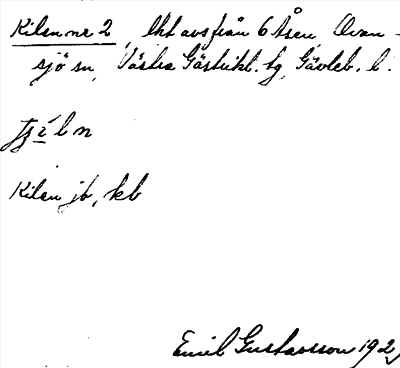 Kilen nr 2, lht avs från 6 Åsen, Ovan-
sjö sn, Västra Gästrikl. tg, Gävleb. l.
Kilen jb, kb
Emil Gustavsson 192